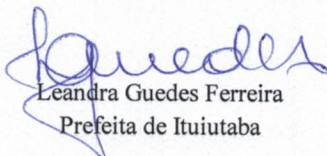 Guedes
Leandra Guedes Ferreira
Prefeita de Ituiutaba